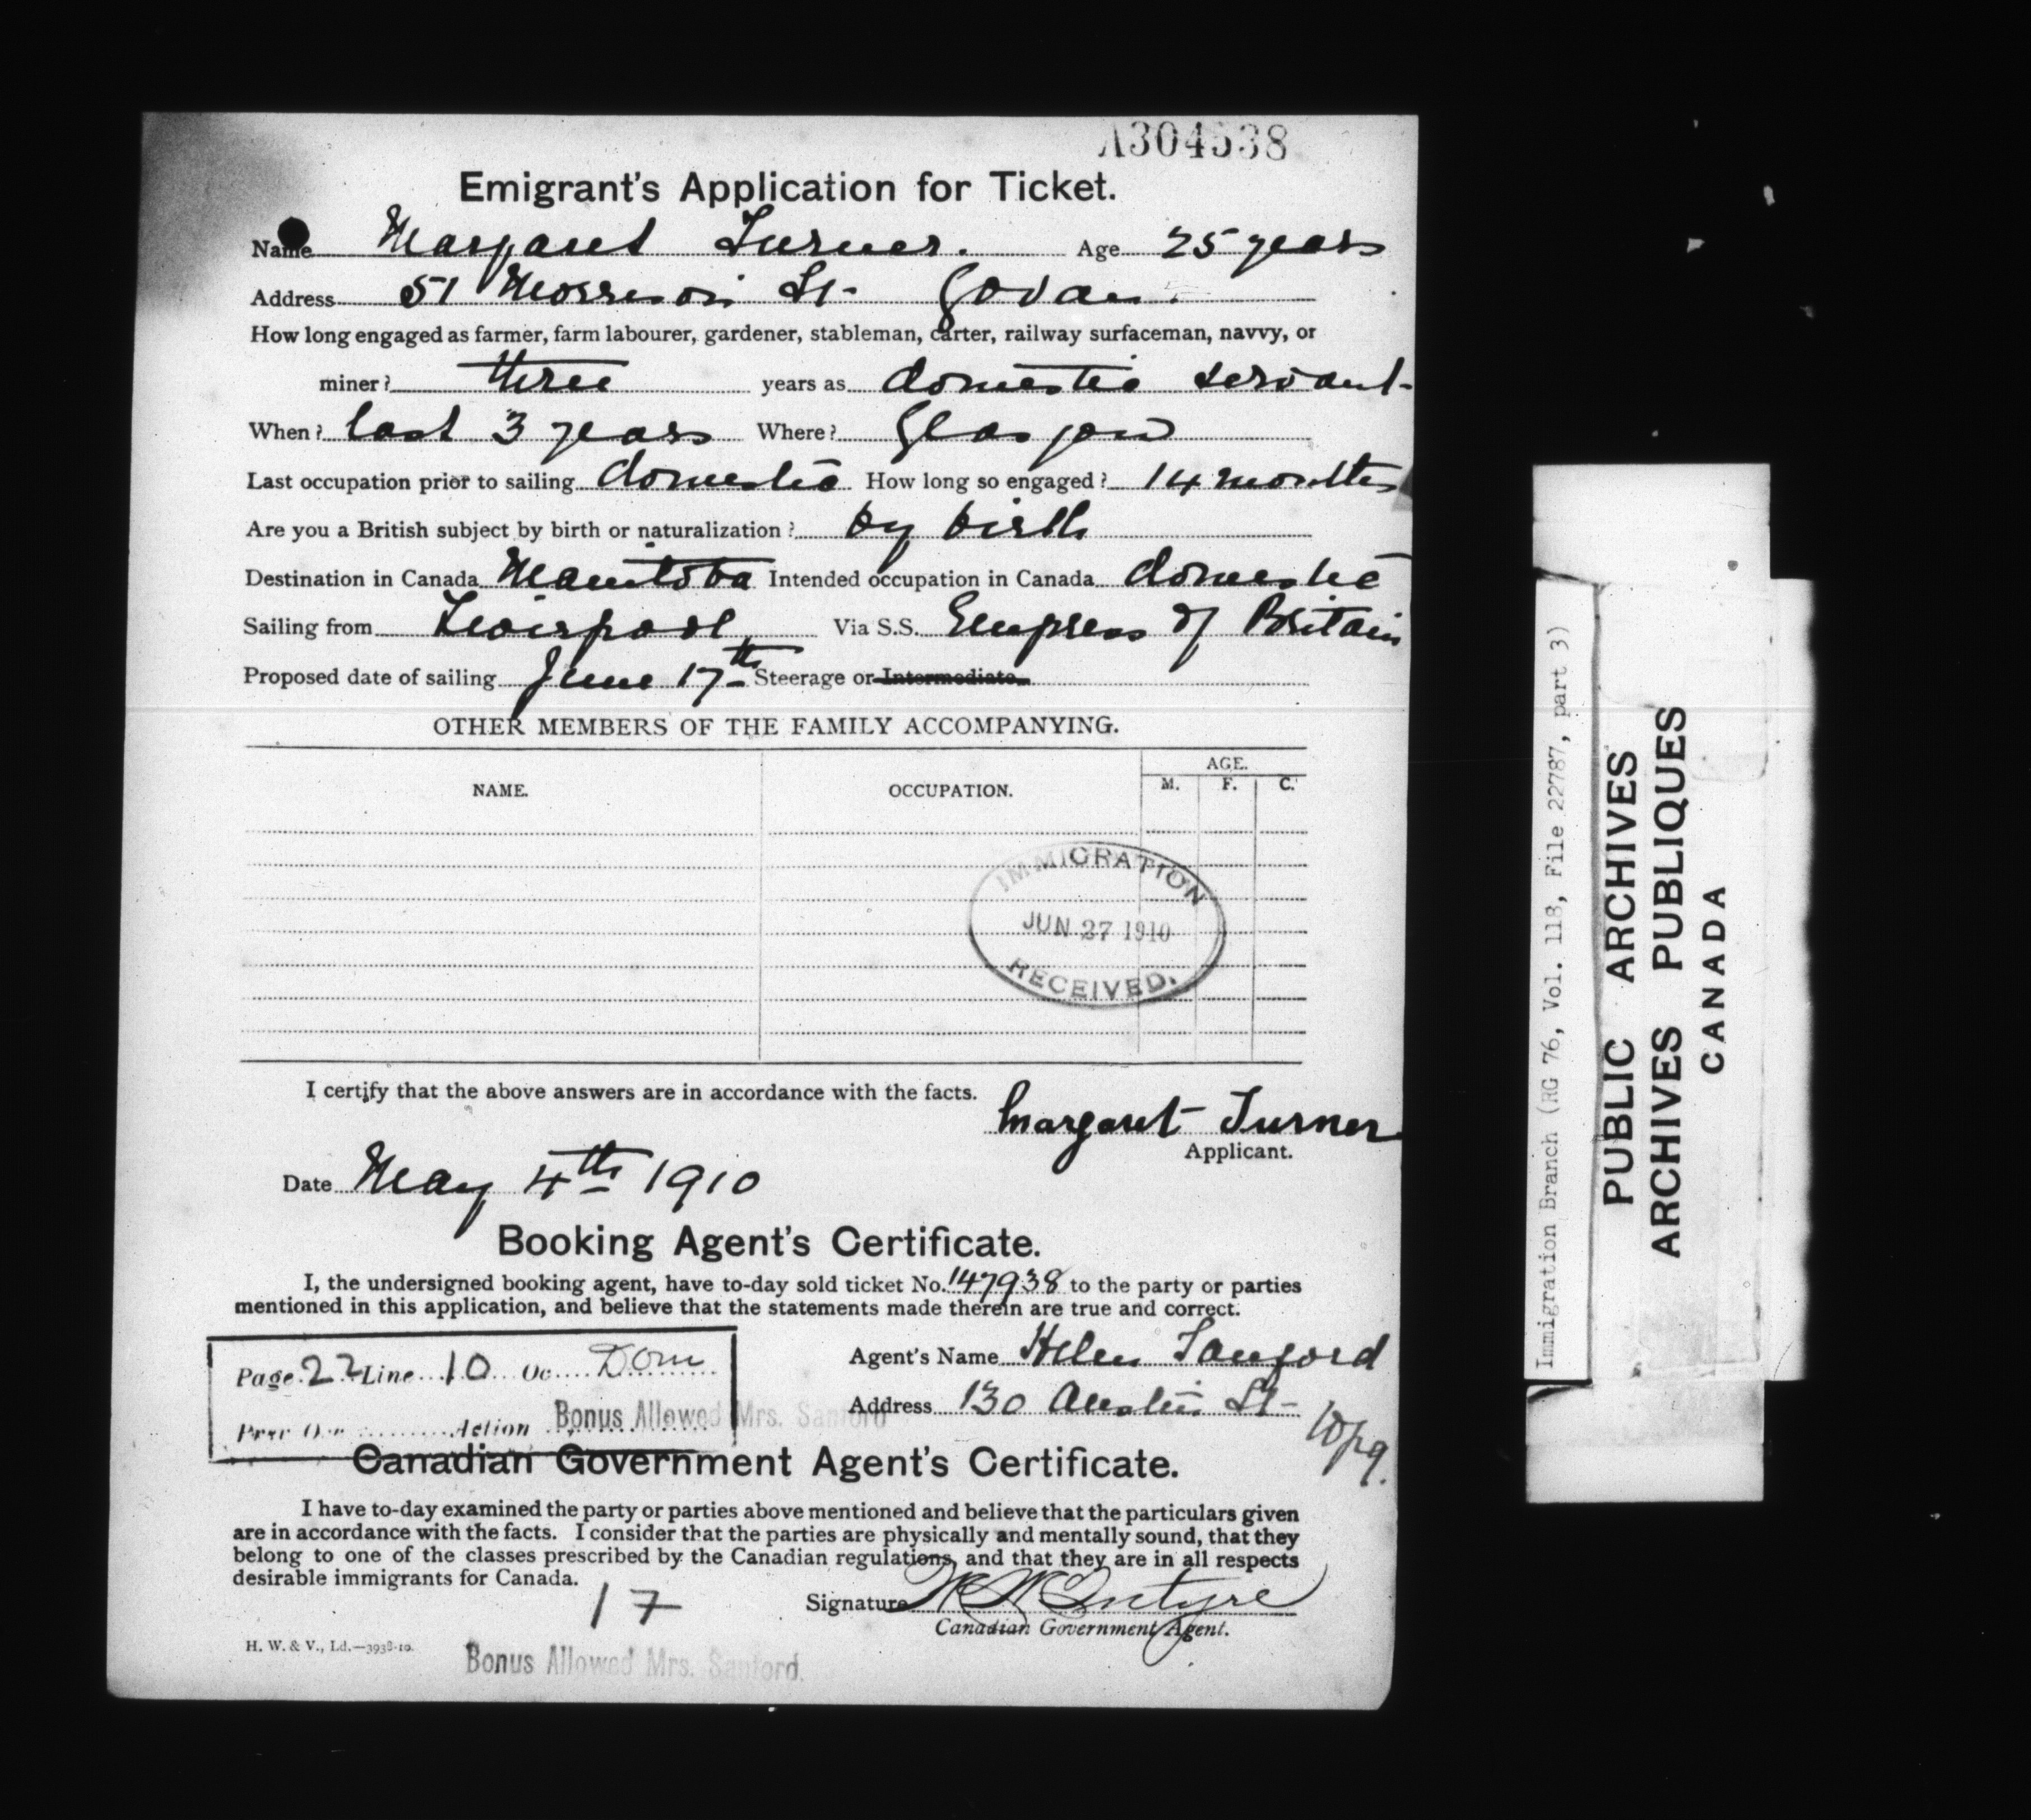 A304538
Emigrant's Application for Ticket.
Name Margaret Turner. Age 25 years
Address 51 Morrison St. Govan.
How long engaged as farmer, farm labourer, gardener, stableman, carter, railway surfaceman, navvy, or
miner? three years as domestic servant
When? last 3 years Where? Glasgow
Last occupation prior to sailing domestic How long so engaged? 14 months
Are you a British subject by birth or naturalization? by birth
Destination in Canada Manitoba Intended occupation in Canada domestic
Sailing from Liverpool Via S.S. Empress of Britain
Proposed date of sailing June 17th Steerage or Intermediate
OTHER MEMBERS OF THE FAMILY ACCOMPANYING.
NAME. OCCUPATION. AGE.
M. F. C.
IMMIGRATION
JUN 27 1910
RECEIVED.
I certify that the above answers are in accordance with the facts.
Margaret Turner
Applicant.
Date May 4th 1910
Booking Agent's Certificate.
I, the undersigned booking agent, have to-day sold ticket No. 147938 to the party or parties
mentioned in this application, and believe that the statements made therein are true and correct.
Agent's Name Helen Sanford
Address 130 Austin St- Wpg.
Page 22 Line 10 Oc Dom
Prev Oc Action Bonus Allowed Mrs. Sanford
Canadian Government Agent's Certificate.
I have to-day examined the party or parties above mentioned and believe that the particulars given
are in accordance with the facts. I consider that the parties are physically and mentally sound, that they
belong to one of the classes prescribed by the Canadian regulations, and that they are in all respects
desirable immigrants for Canada.
17
Signature W McIntyre
Canadian Government Agent.
H. W. & V., Ld.—3938-10.
Bonus Allowed Mrs. Sanford.
Immigration Branch (RG 76, Vol. 118, File 22787, part 3)
PUBLIC ARCHIVES
ARCHIVES PUBLIQUES
CANADA